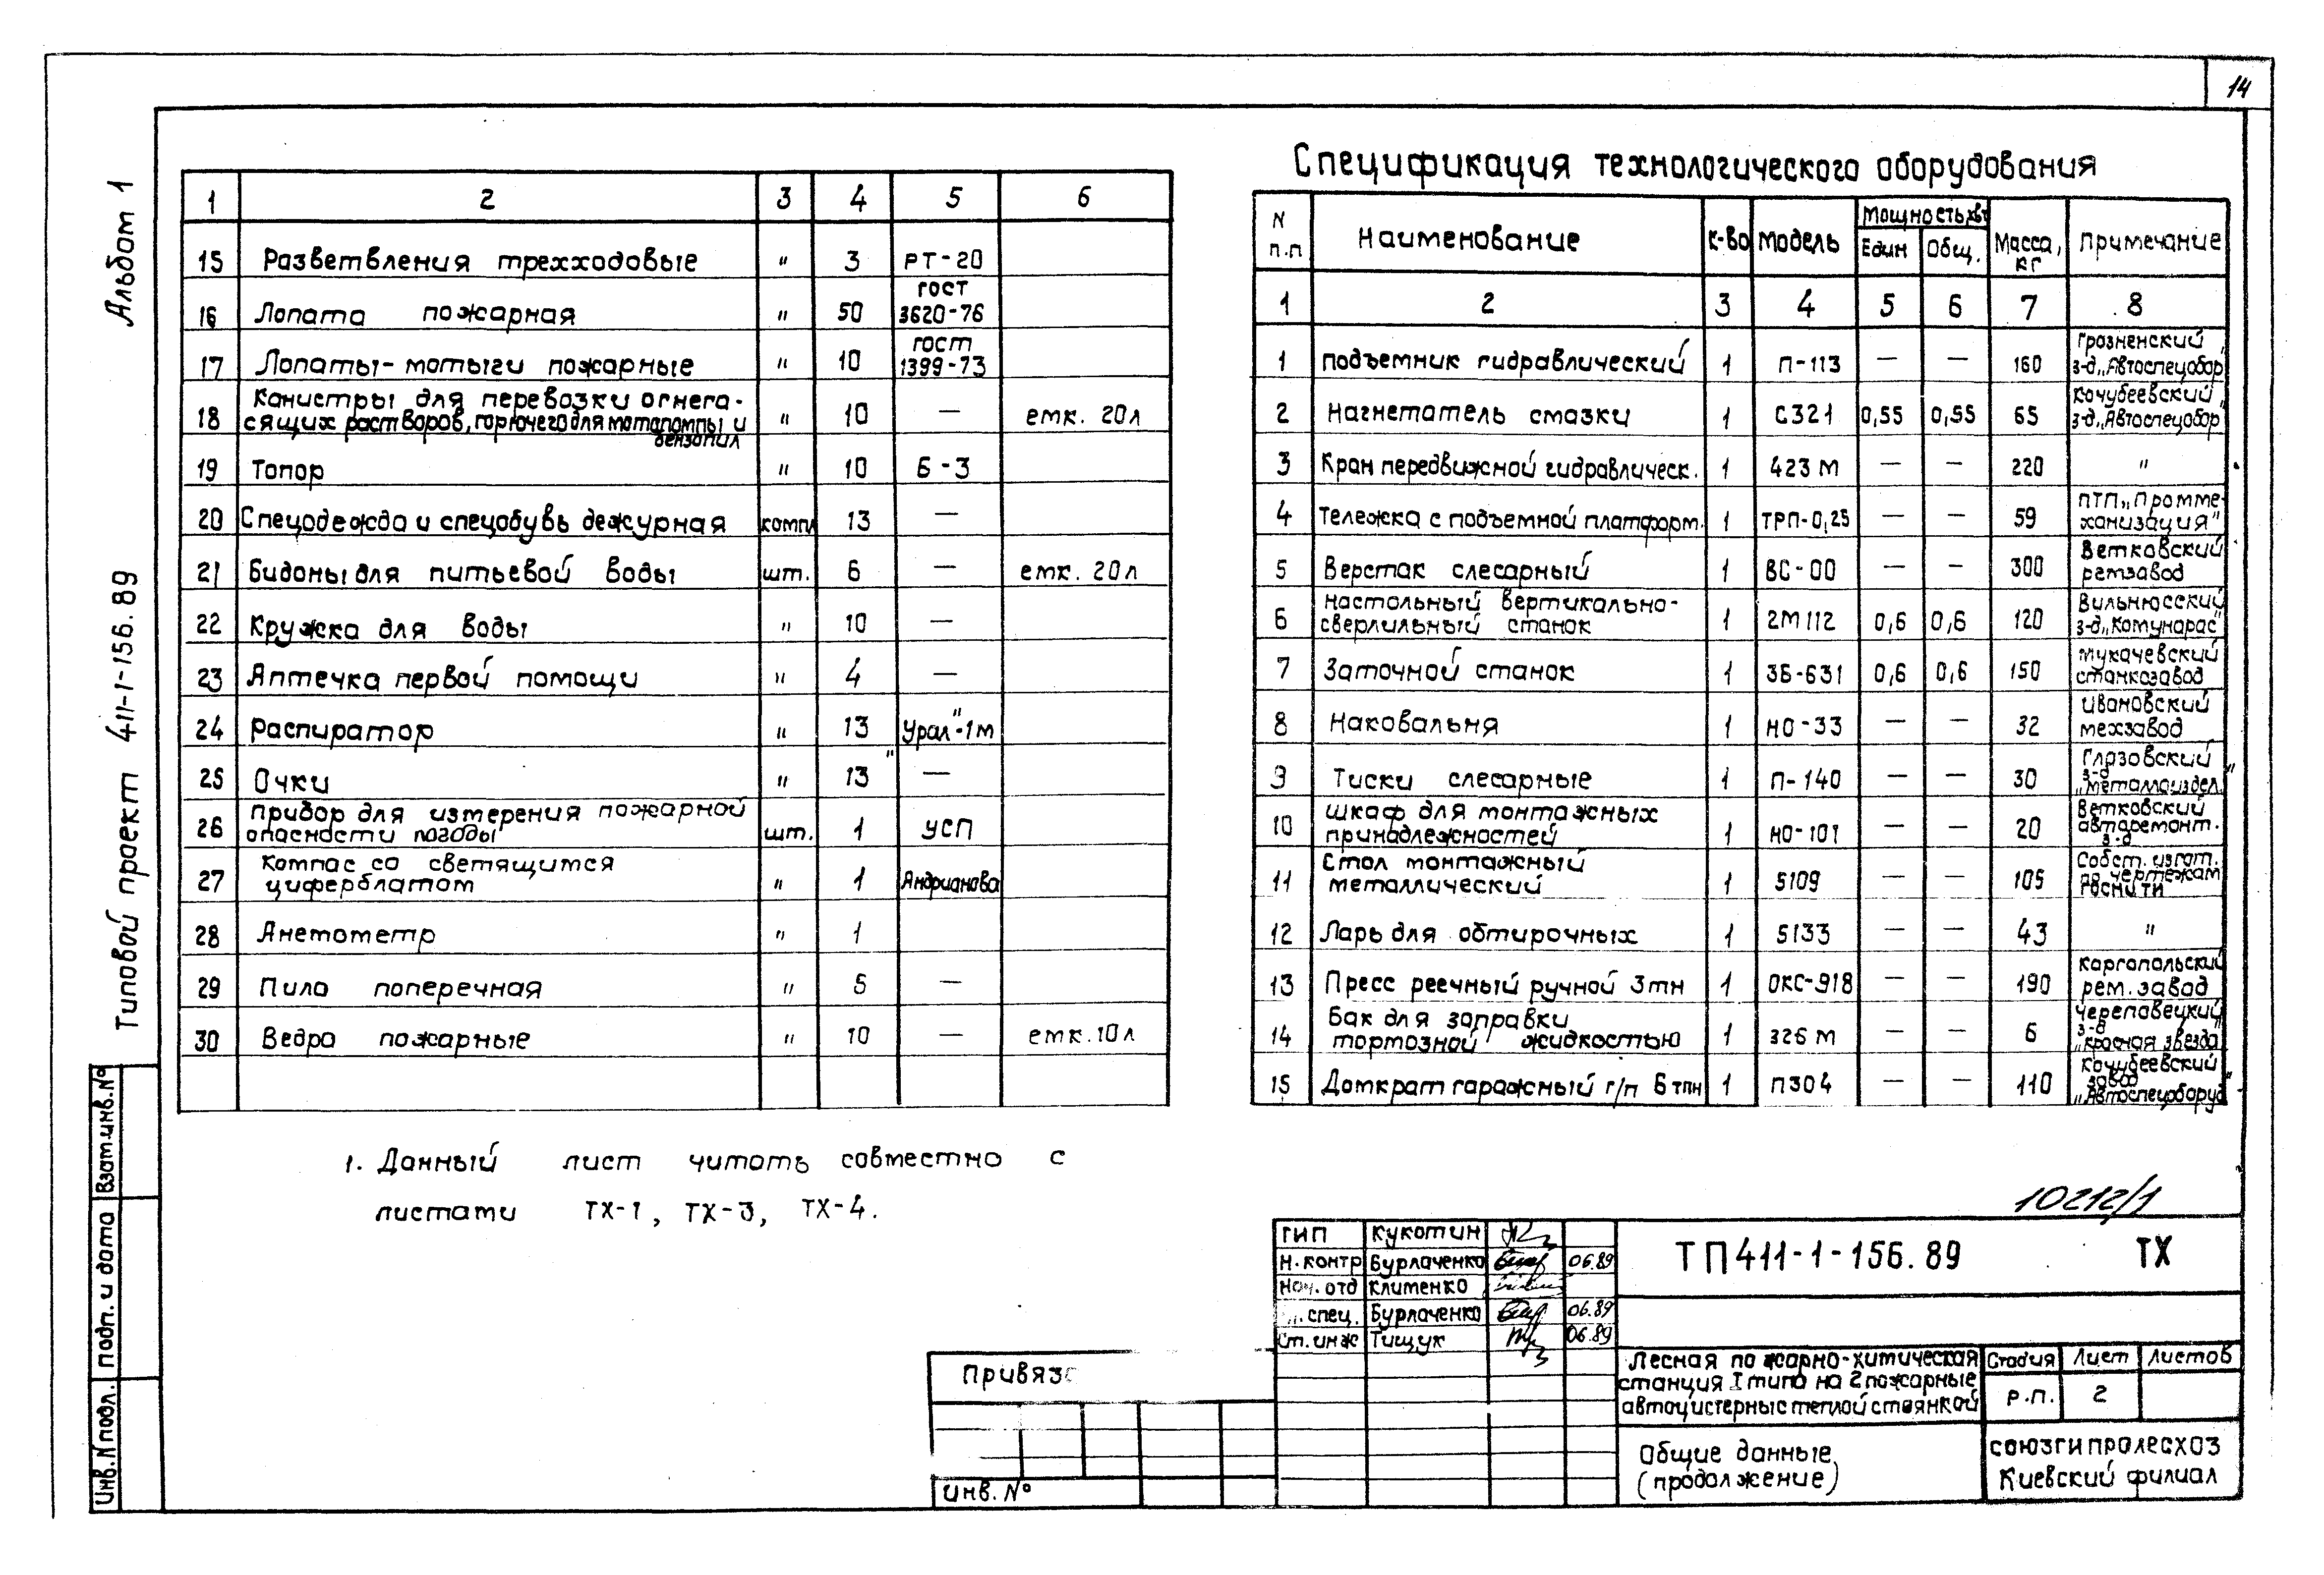 14
Альбом 1
Типовой проект 411-1-156.89
1 2 3 4 5 6
15 Разветвления трехходовые " 3 РТ-20
16 Лопата пожарная " 50 ГОСТ 3620-76
17 Лопаты-мотыги пожарные " 10 ГОСТ 1399-73
18 Канистры для перевозки огнега-
сящих растворов, горючего для мотопомпы и
бензопил " 10 — емк. 20л
19 Топор " 10 Б-3
20 Спецодежда и спецобувь дежурная компл 13 —
21 Бидоны для питьевой воды шт. 6 — емк. 20л
22 Кружка для воды " 10 —
23 Аптечка первой помощи " 4 —
24 Распиратор " 13 „Урал"-1м
25 Очки " 13 —
26 Прибор для измерения пожарной
опасности погоды шт. 1 УСП
27 Компас со светящимся
циферблатом " 1 Андрианова
28 Анемометр " 1
29 Пила поперечная " 5 —
30 Ведра пожарные " 10 — емк. 10л
1. Данный лист читать совместно с
листами ТХ-1, ТХ-3, ТХ-4.
Спецификация технологического оборудования
N п.п Наименование к-во Модель Мощность, кВт Един Общ. Масса, кг Примечание
1 2 3 4 5 6 7 8
1 Подъемник гидравлический 1 П-113 — — 160 Грозненский з-д „Автоспецобор"
2 Нагнетатель смазки 1 С321 0,55 0,55 65 Кочубеевский з-д „Автоспецобор"
3 Кран передвижной гидравлическ. 1 423 М — — 220 "
4 Тележка с подъемной платформ. 1 ТРП-0,25 — — 59 ПТП „Промме-
ханизация"
5 Верстак слесарный 1 ВС-00 — — 300 Ветковский ремзавод
6 Настольный вертикально-
сверлильный станок 1 2М112 0,6 0,6 120 Вильнюсский з-д „Комунарас"
7 Заточной станок 1 3Б-631 0,6 0,6 150 Мукачевский станкозавод
8 Наковальня 1 НО-33 — — 32 Ивановский мехзавод
9 Тиски слесарные 1 П-140 — — 30 Глазовский з-д „Металлоиздел."
10 Шкаф для монтажных
принадлежностей 1 НО-101 — — 20 Ветковский авторемонт. з-д
11 Стол монтажный
металлический 1 5109 — — 105 Собст. изгот. по чертежам ГОСНИТИ
12 Ларь для обтирочных 1 5133 — — 43 "
13 Пресс реечный ручной 3тн 1 ОКС-918 — — 190 Каргапольский рем. завод
14 Бак для заправки
тормозной жидкостью 1 326 М — — 6 Череповецкий з-д „Красная звезда"
15 Домкрат гаражный г/п 6 тпн 1 П304 — — 110 Кочубеевский завод „Автоспецоборуд"
10212/1
ГИП Кукотин
Н. контр Бурлаченко 06.89
Нач. отд Клименко
спец. Бурлаченко 06.89
Ст. инж Тищук 06.89
ТП 411-1-156.89 ТХ
Лесная пожарно-химическая
станция I типа на 2 пожарные
автоцистерны с теплой стоянкой
Стадия Лист Листов
Р.П. 2
Общие данные
(продолжение)
СОЮЗГИПРОЛЕСХОЗ
Киевский филиал
Привяза
Инв. №
Взам.инв.№
Подп. и дата
Инв. N подл.